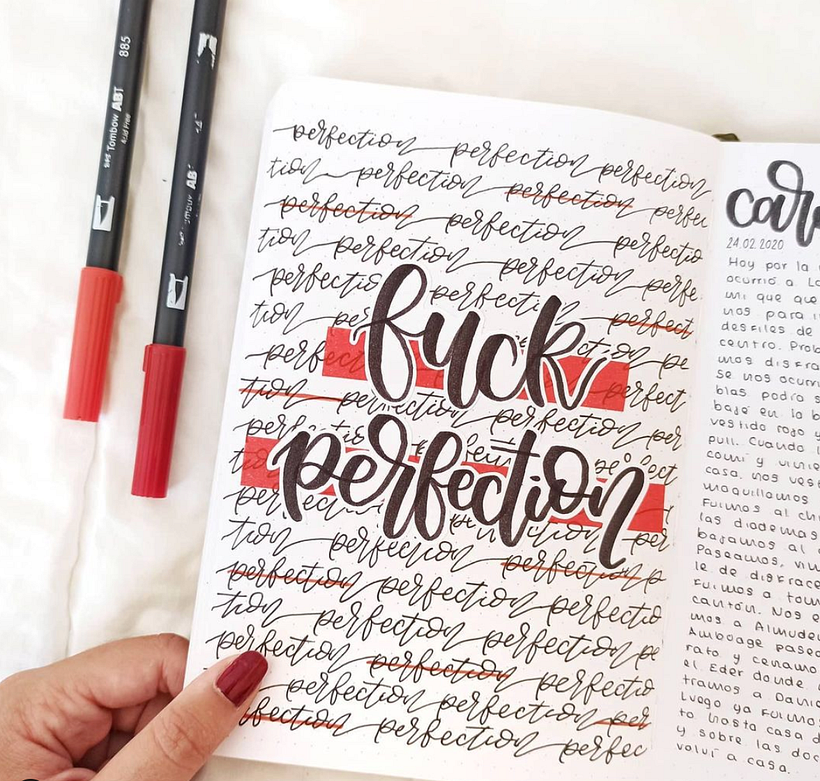 885
Tombow ABT
Acid Free
AB
perfection perfection perfection
tion perfection perfection perfec
perfection perfection perfectio
tion perfection perfection perfe
perfectio perfecti perfect
tion
fuck
perfect
tion perfection perfection per
perfection
tion perfection perfection p
perfection perfection perfectio
tion perfection perfection pe
perfection perfection perfectio
perfection perfection per
fection perfection perfec
24.02.2020
Hoy por la
ocurrió a La
mi que que
nos para i
desfiles de
centro. Prob
mos disfra
se nos ocurri
blas podía s
baje en la b
vestido rojo y
pull. Cuando l
comí y vinie
casa. nos vest
maquillamos
Fuimos al ch
las diademas
bajamos al
Paseamos,
le de disfrace
Fuimos a tom
cantón. Nos e
mos a Almude
Amboage pasea
rato y cenamo
el. Eder donde
tramos a Danie
Luego ya Fuimos
to hasta casa d
y sobre las doc
volví a casa.